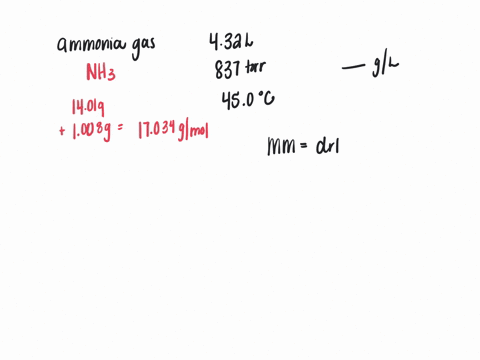 ammonia gas
NH3
14.01g
+ 1.008g = 17.034 g/mol
4.32L
837 torr
45.0 °C
— g/L
MM = drl